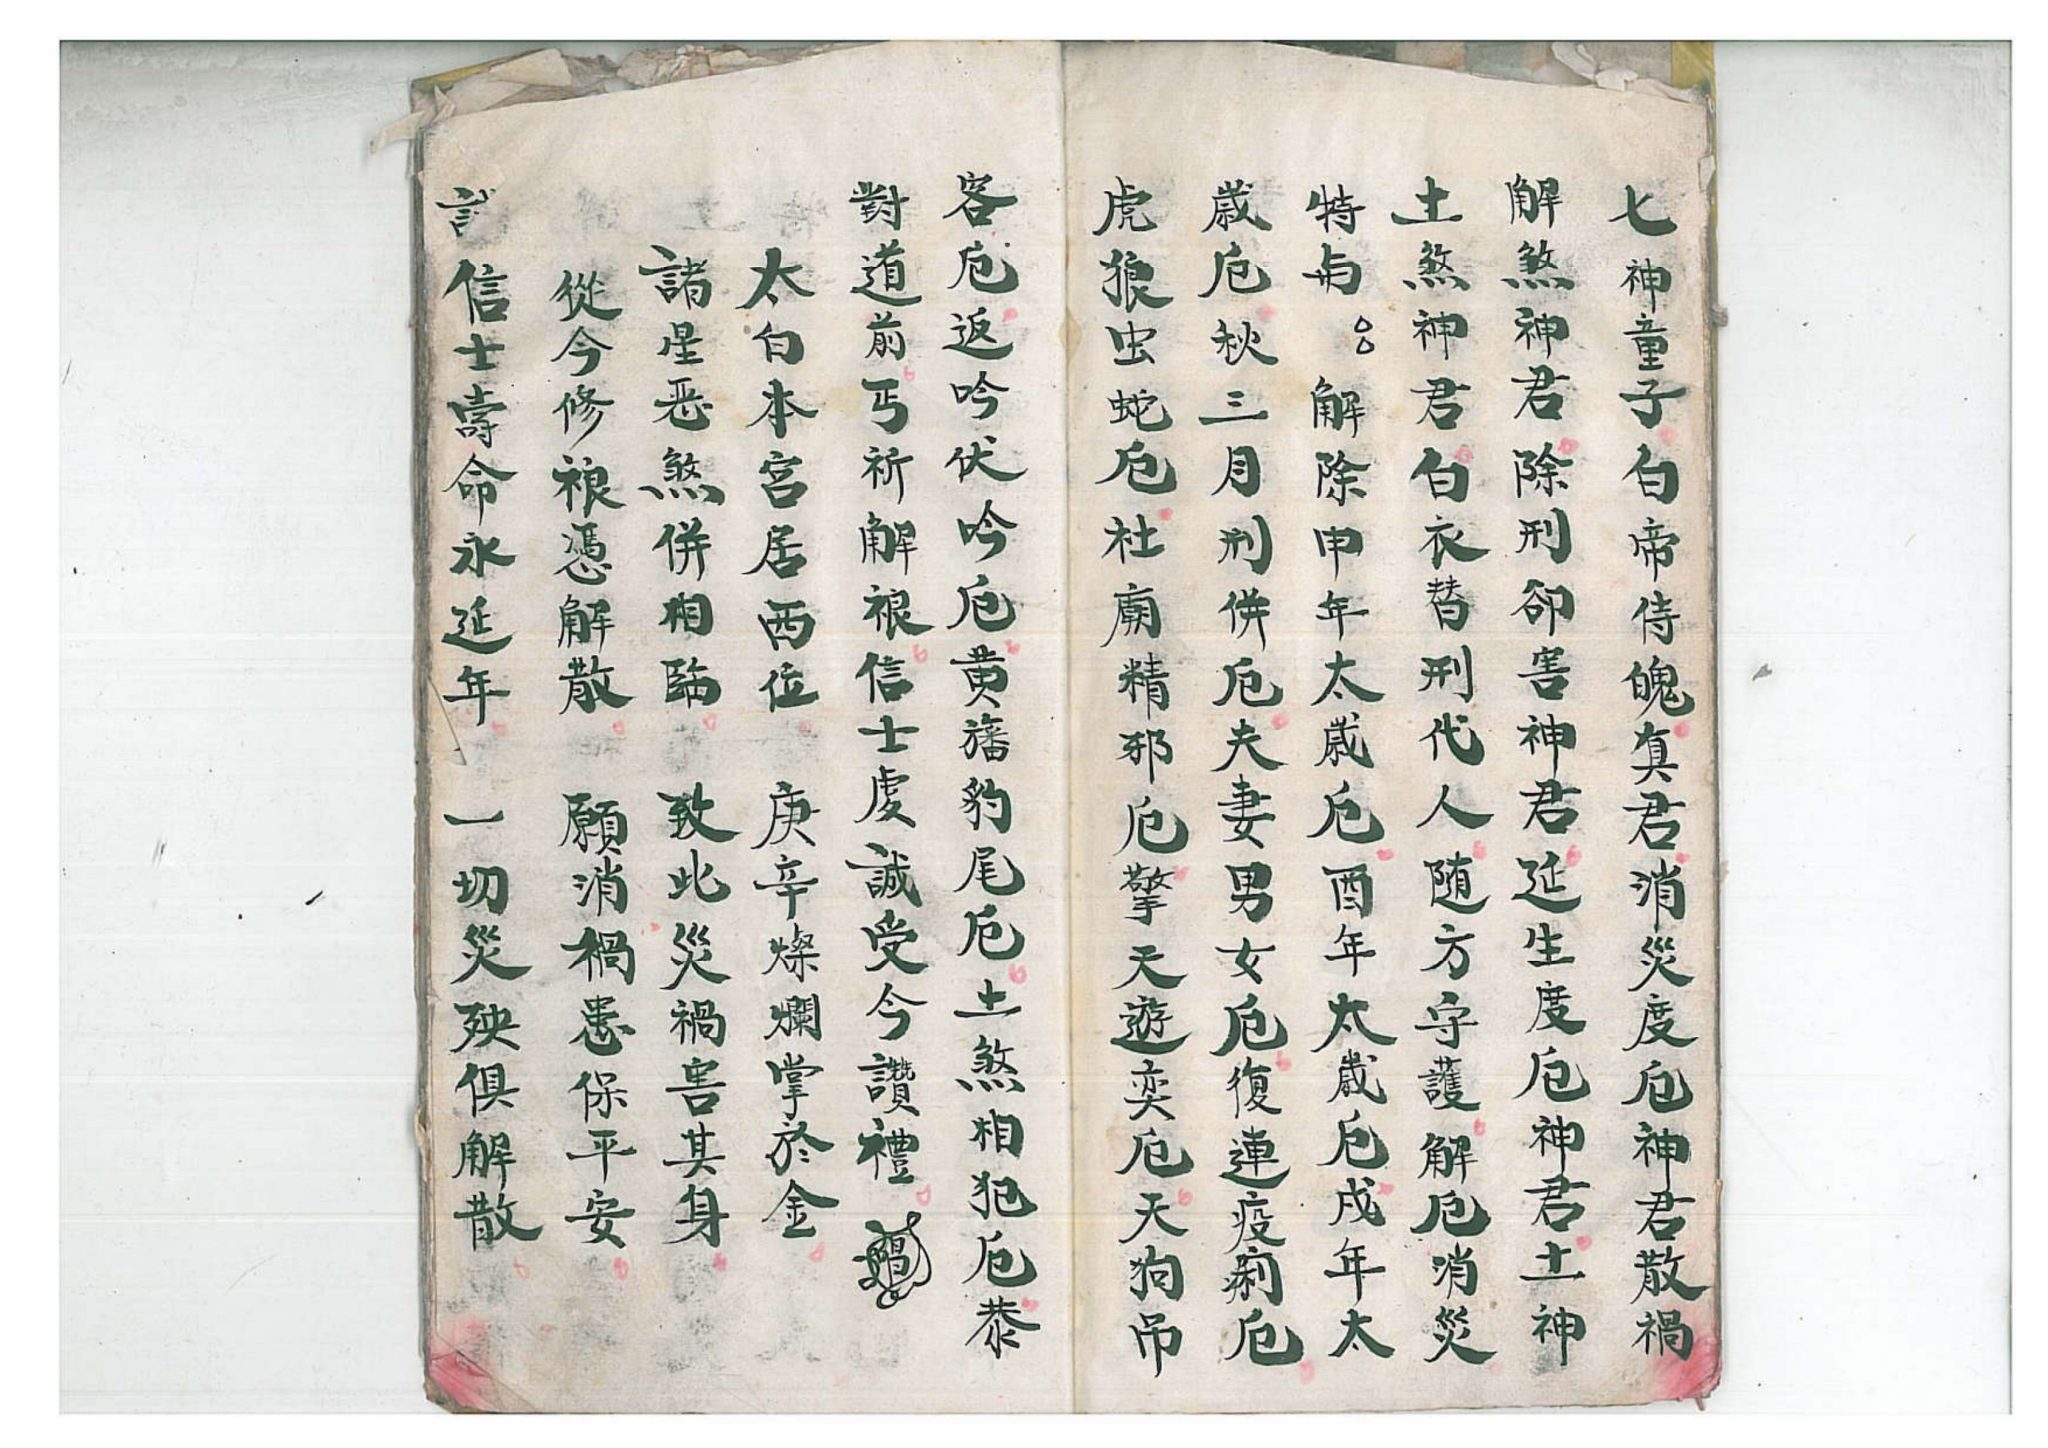 七神童子白帝侍魄真君消災度厄神君散禍
解煞神君除刑卻害神君延生度厄神君土神
土煞神君白衣替刑代人随方守護解厄消災
特与 解除申年太歲厄酉年太歲厄戌年太
歲厄秋三月刑併厄夫妻男女厄復連疫痢厄
虎狼虫蛇厄社廟精邪厄擎天遊奕厄天狗吊
客厄返吟伏吟厄黄旛豹尾厄土煞相犯厄恭
對道前丐祈解禳信士虔誠受今讃禮
太白本宮居西位 庚辛燦爛掌於金
諸星恶煞併相臨 致此災禍害其身
從今修禳憑解散 願消禍患保平安
信士壽命永延年 一切災殃俱解散